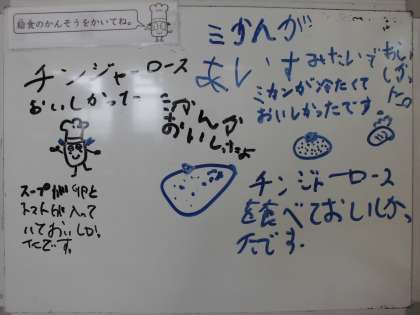 給食のかんそうをかいてね。
チンジャーロース
おいしかったー
スープが
トマトが入って
いておいしか
ったです。
みかんが
おいしかったよ
ミかんが
あいすみたいで
おいしかった
ミカンが冷たくて
おいしかったです
チンジャーロース
を食べておいしかっ
たです。